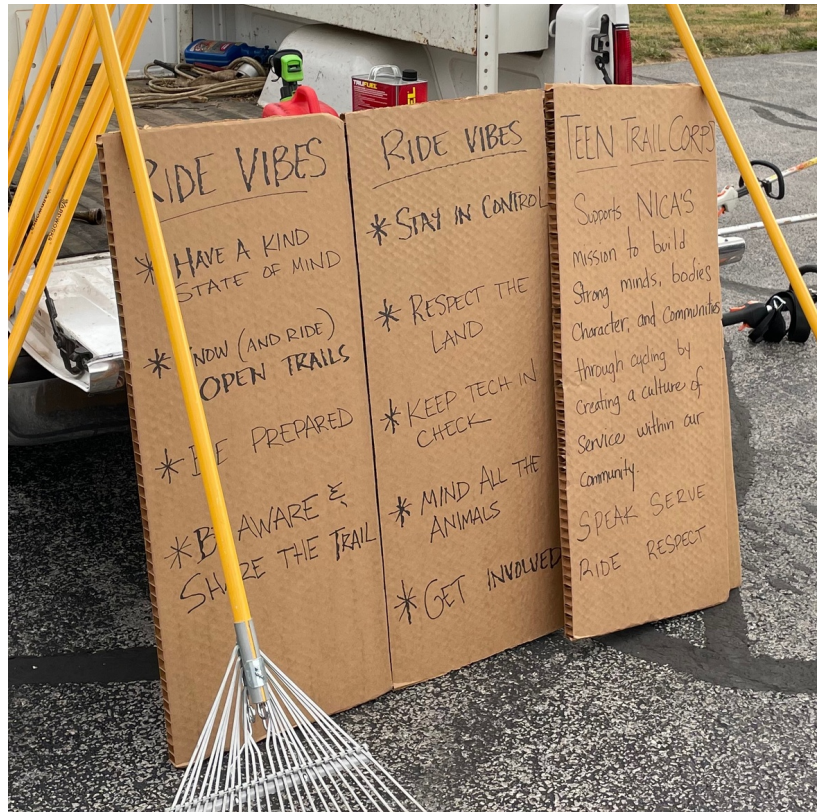 TRUFUEL
RIDE VIBES
* HAVE A KIND
STATE OF MIND
* KNOW (AND RIDE)
OPEN TRAILS
* BE PREPARED
* BE AWARE &
SHARE THE TRAIL
RIDE VIBES
* STAY IN CONTROL
* RESPECT THE
LAND
* KEEP TECH IN
CHECK
* MIND ALL THE
ANIMALS
* GET INVOLVED
TEEN TRAIL CORPS
Supports NICA'S
mission to build
Strong minds, bodies
Character, and Communities
through cycling by
creating a culture of
Service within our
community.
SPEAK SERVE
RIDE RESPECT